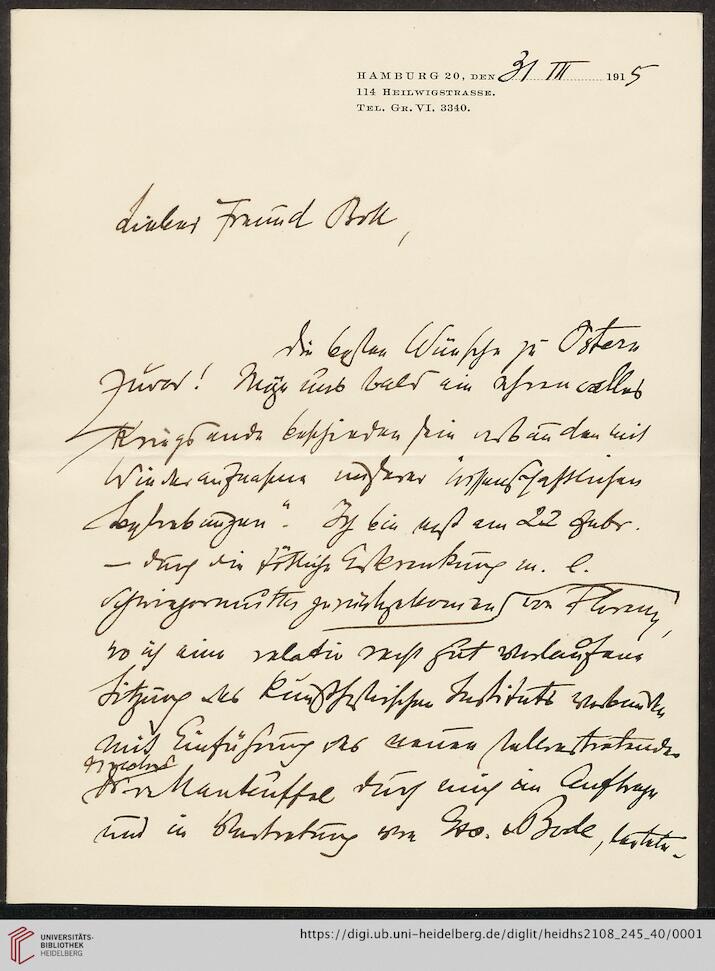 HAMBURG 20, DEN 31 III 1915
114 HEILWIGSTRASSE.
TEL. GR. VI. 3340.
Lieber Freund Boll,
die besten Wünsche zu Ostern
zuvor! Möge uns bald ein ehrenvolles
Kriegsende beschieden sein verbunden mit
Wiederaufnahme unserer "wissenschaftlichen
Bestrebungen". Ich bin erst am 22 Febr.
– durch die tötliche Erkrankung m. l.
Schwiegermutter zurückgekommen von Florenz,
wo ich eine relativ recht gut verlaufene
Sitzung des Kunsthistorischen Instituts verbunden
mit Einführung des neuen stellvertretenden
Direktors
Dr v Manteuffel durch mich im Auftrage
und in Vertretung von Exc. v Bode,
UNIVERSITÄTS-
BIBLIOTHEK
HEIDELBERG
https://digi.ub.uni-heidelberg.de/diglit/heidhs2108_245_40/0001